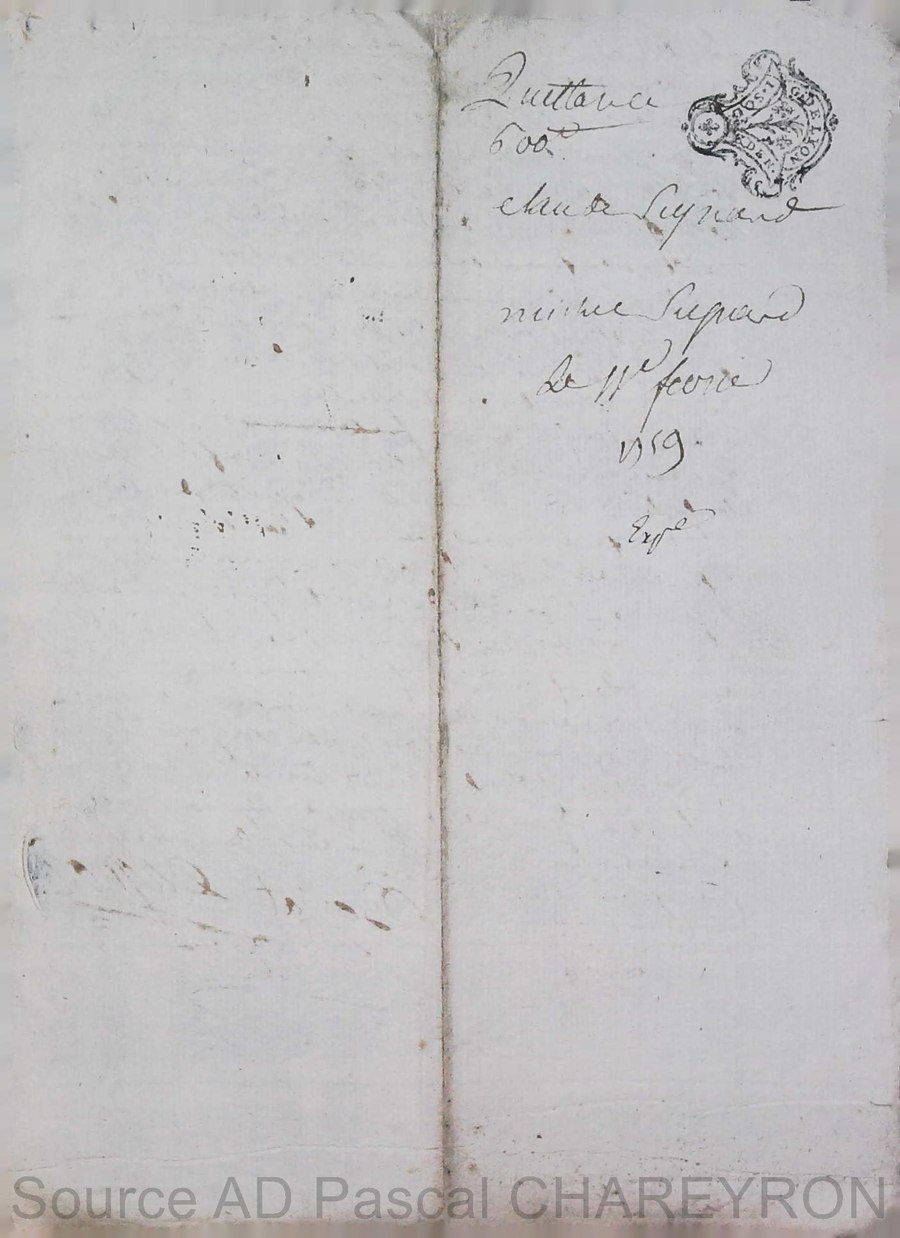 Quittance
600tt
claude Suynard
michel Suynard
Le 11e fevrie
1759
Expe
G DE LYON
Source AD Pascal CHAREYRON